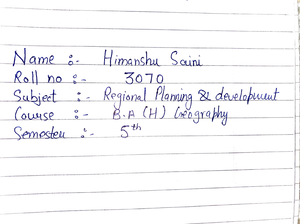 Name :- Himanshu Saini
Roll no :- 3070
Subject :- Regional Planning & development
Course :- B.A (H) Geography
Semester :- 5th